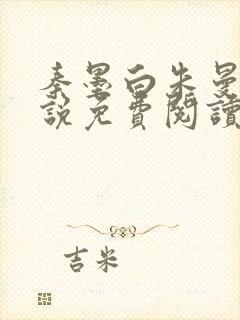 秦墨白朱曼
說免費閱讀
吉米